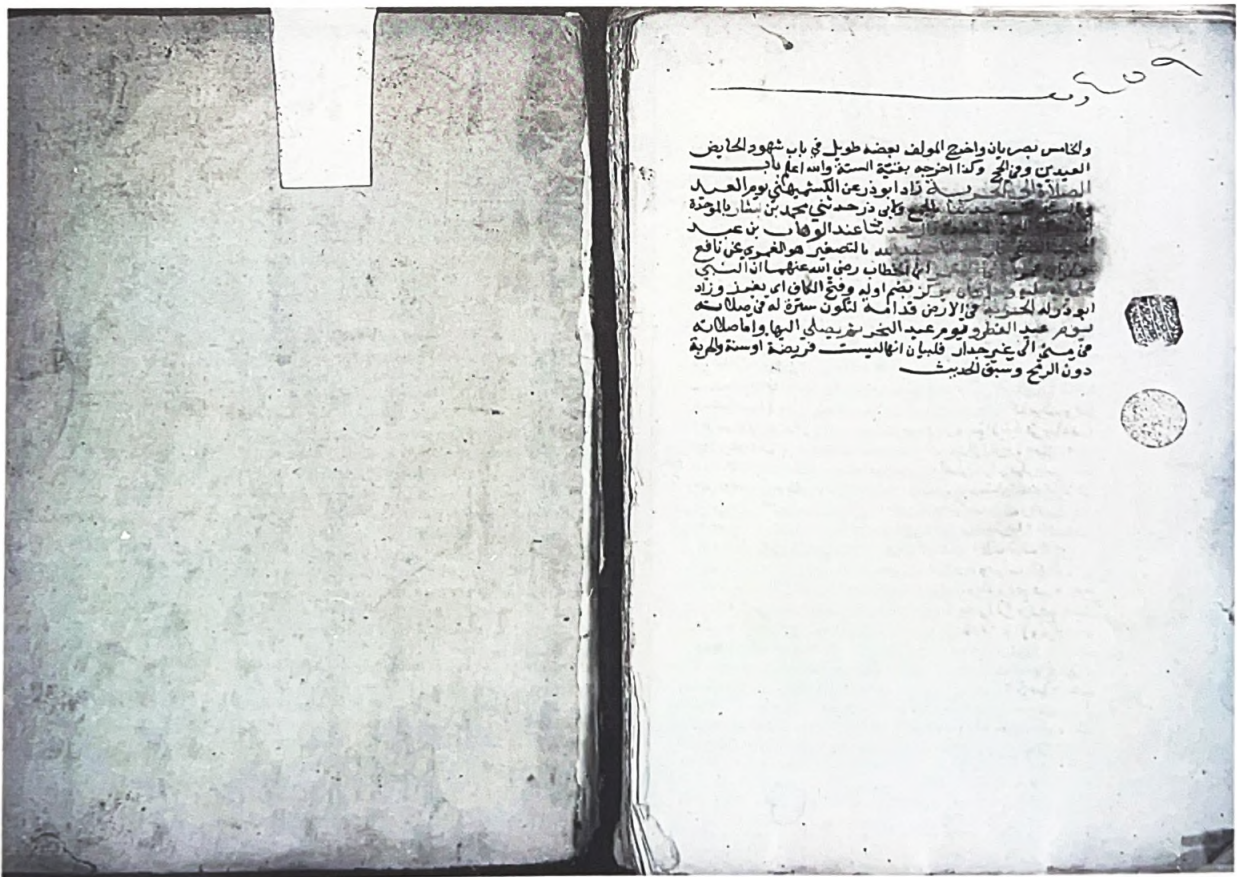 والخامس بصريان واخرج المولف بعضه طويل في باب شهود الحايض
العيدين وفي الحج وكذا اخرجه بقية الستة والله اعلم باب
الصلاة الي الحربة زاد ابو ذر عن الكشميهني يوم العيد
حدثني محمد بن بشار بالموحدة
عبد الوهاب بن عبد
بالتصغير هو العمري عن نافع
ابن الخطاب رضي الله عنهما ان النبي
بضم اوله وفتح الكاف اي يغرز وزاد
ابو ذر له الحربة في الارض قدامه لتكون سترة له في صلاته
يوم عيد الفطر ويوم عيد النحر ثم يصلي اليها واما صلاته
في منى الي غير جدار فلبيان انها ليست فريضة او سنة والحربة
دون الرمح وسبق الحديث